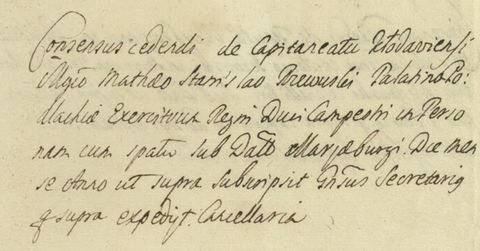 Consensus cedendi de Capitaneatu
Mgco Mathæo Stanislao Palatino Po:
lachiæ Exercituum Regni Duci Campestri in Perso
nam cum spatio sub Datto Marjæburgi. Die men
se Anno ut supra subscripsit Secretarig
q supra expedijt. Cancellaria